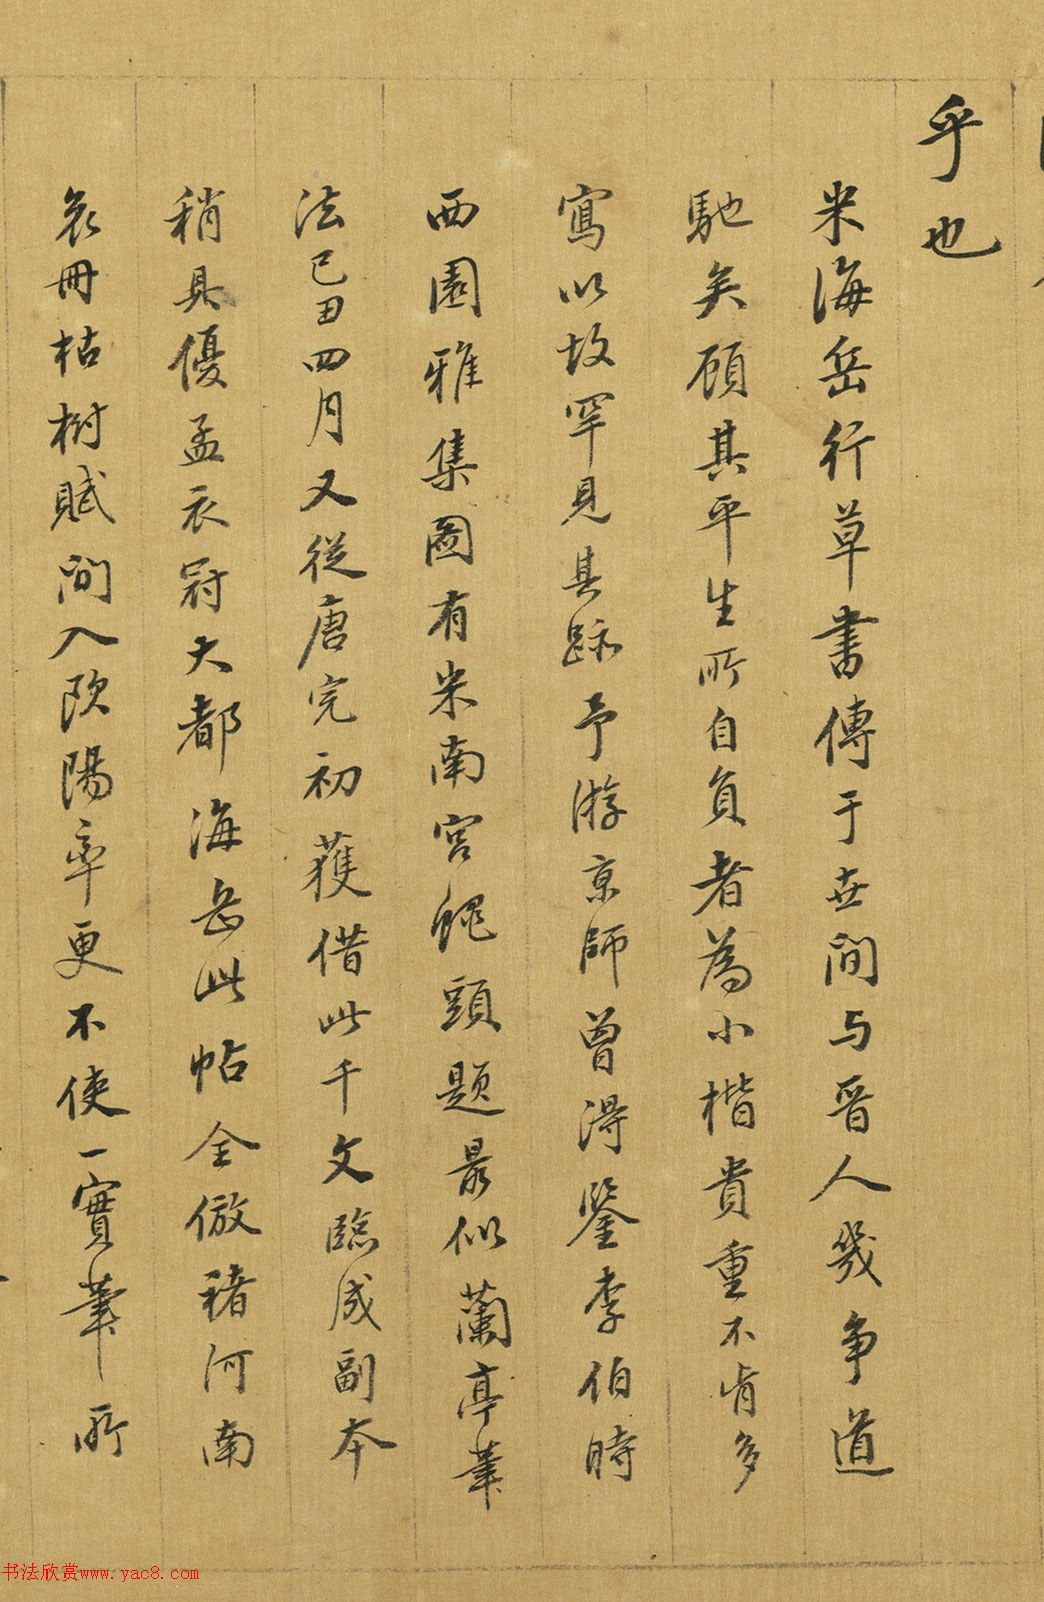 乎也
米海岳行草書傳于世間与晉人幾争道
馳矣顧其平生所自負者為小楷貴重不肯多
寫以故罕見其跡予游京師曾得鑒李伯時
西園雅集圖有米南宮蠅頭題最似蘭亭筆
法己丑四月又從唐完初獲借此千文臨成副本
稍具優孟衣冠大都海岳此帖全倣褚河南
哀冊枯樹賦間入欧陽率更不使一實筆所
书法欣赏www.yac8.com